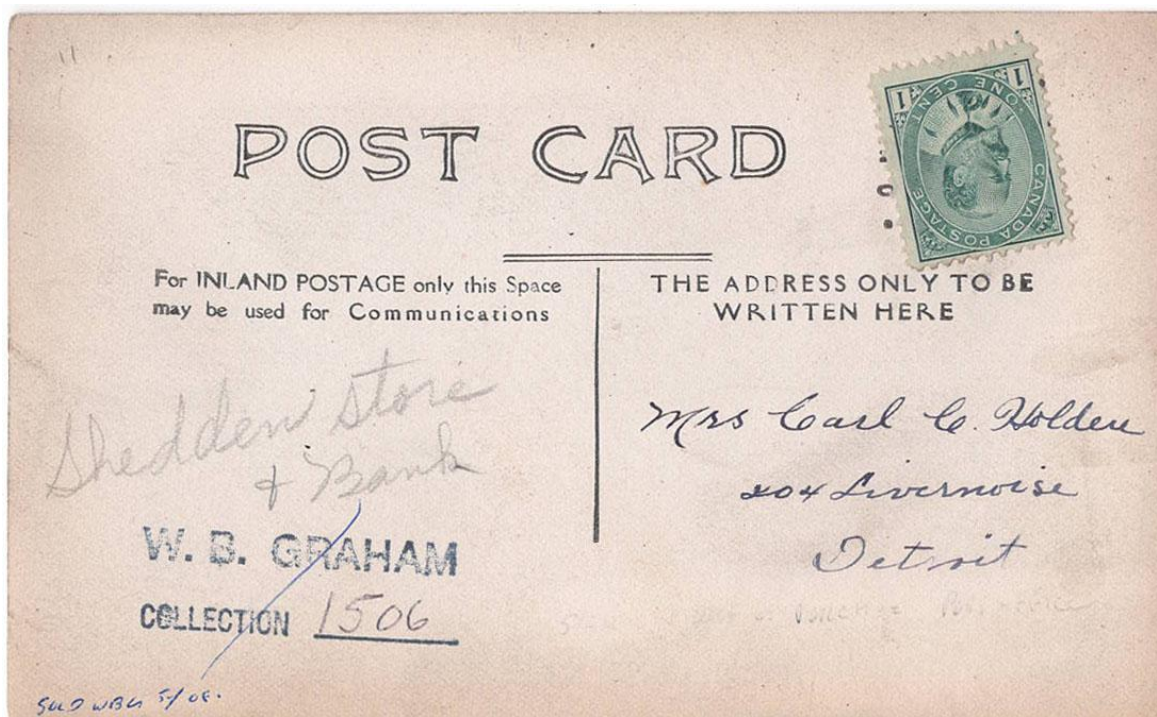 POST CARD
1 1
CANADA POSTAGE
ONE CENT
For INLAND POSTAGE only this Space
may be used for Communications
THE ADDRESS ONLY TO BE
WRITTEN HERE
Shedden Store
+ Bank
W. B. GRAHAM
COLLECTION 1506
Mrs Carl C. Holden
204 Livernoise
Detroit
SOLD WBG